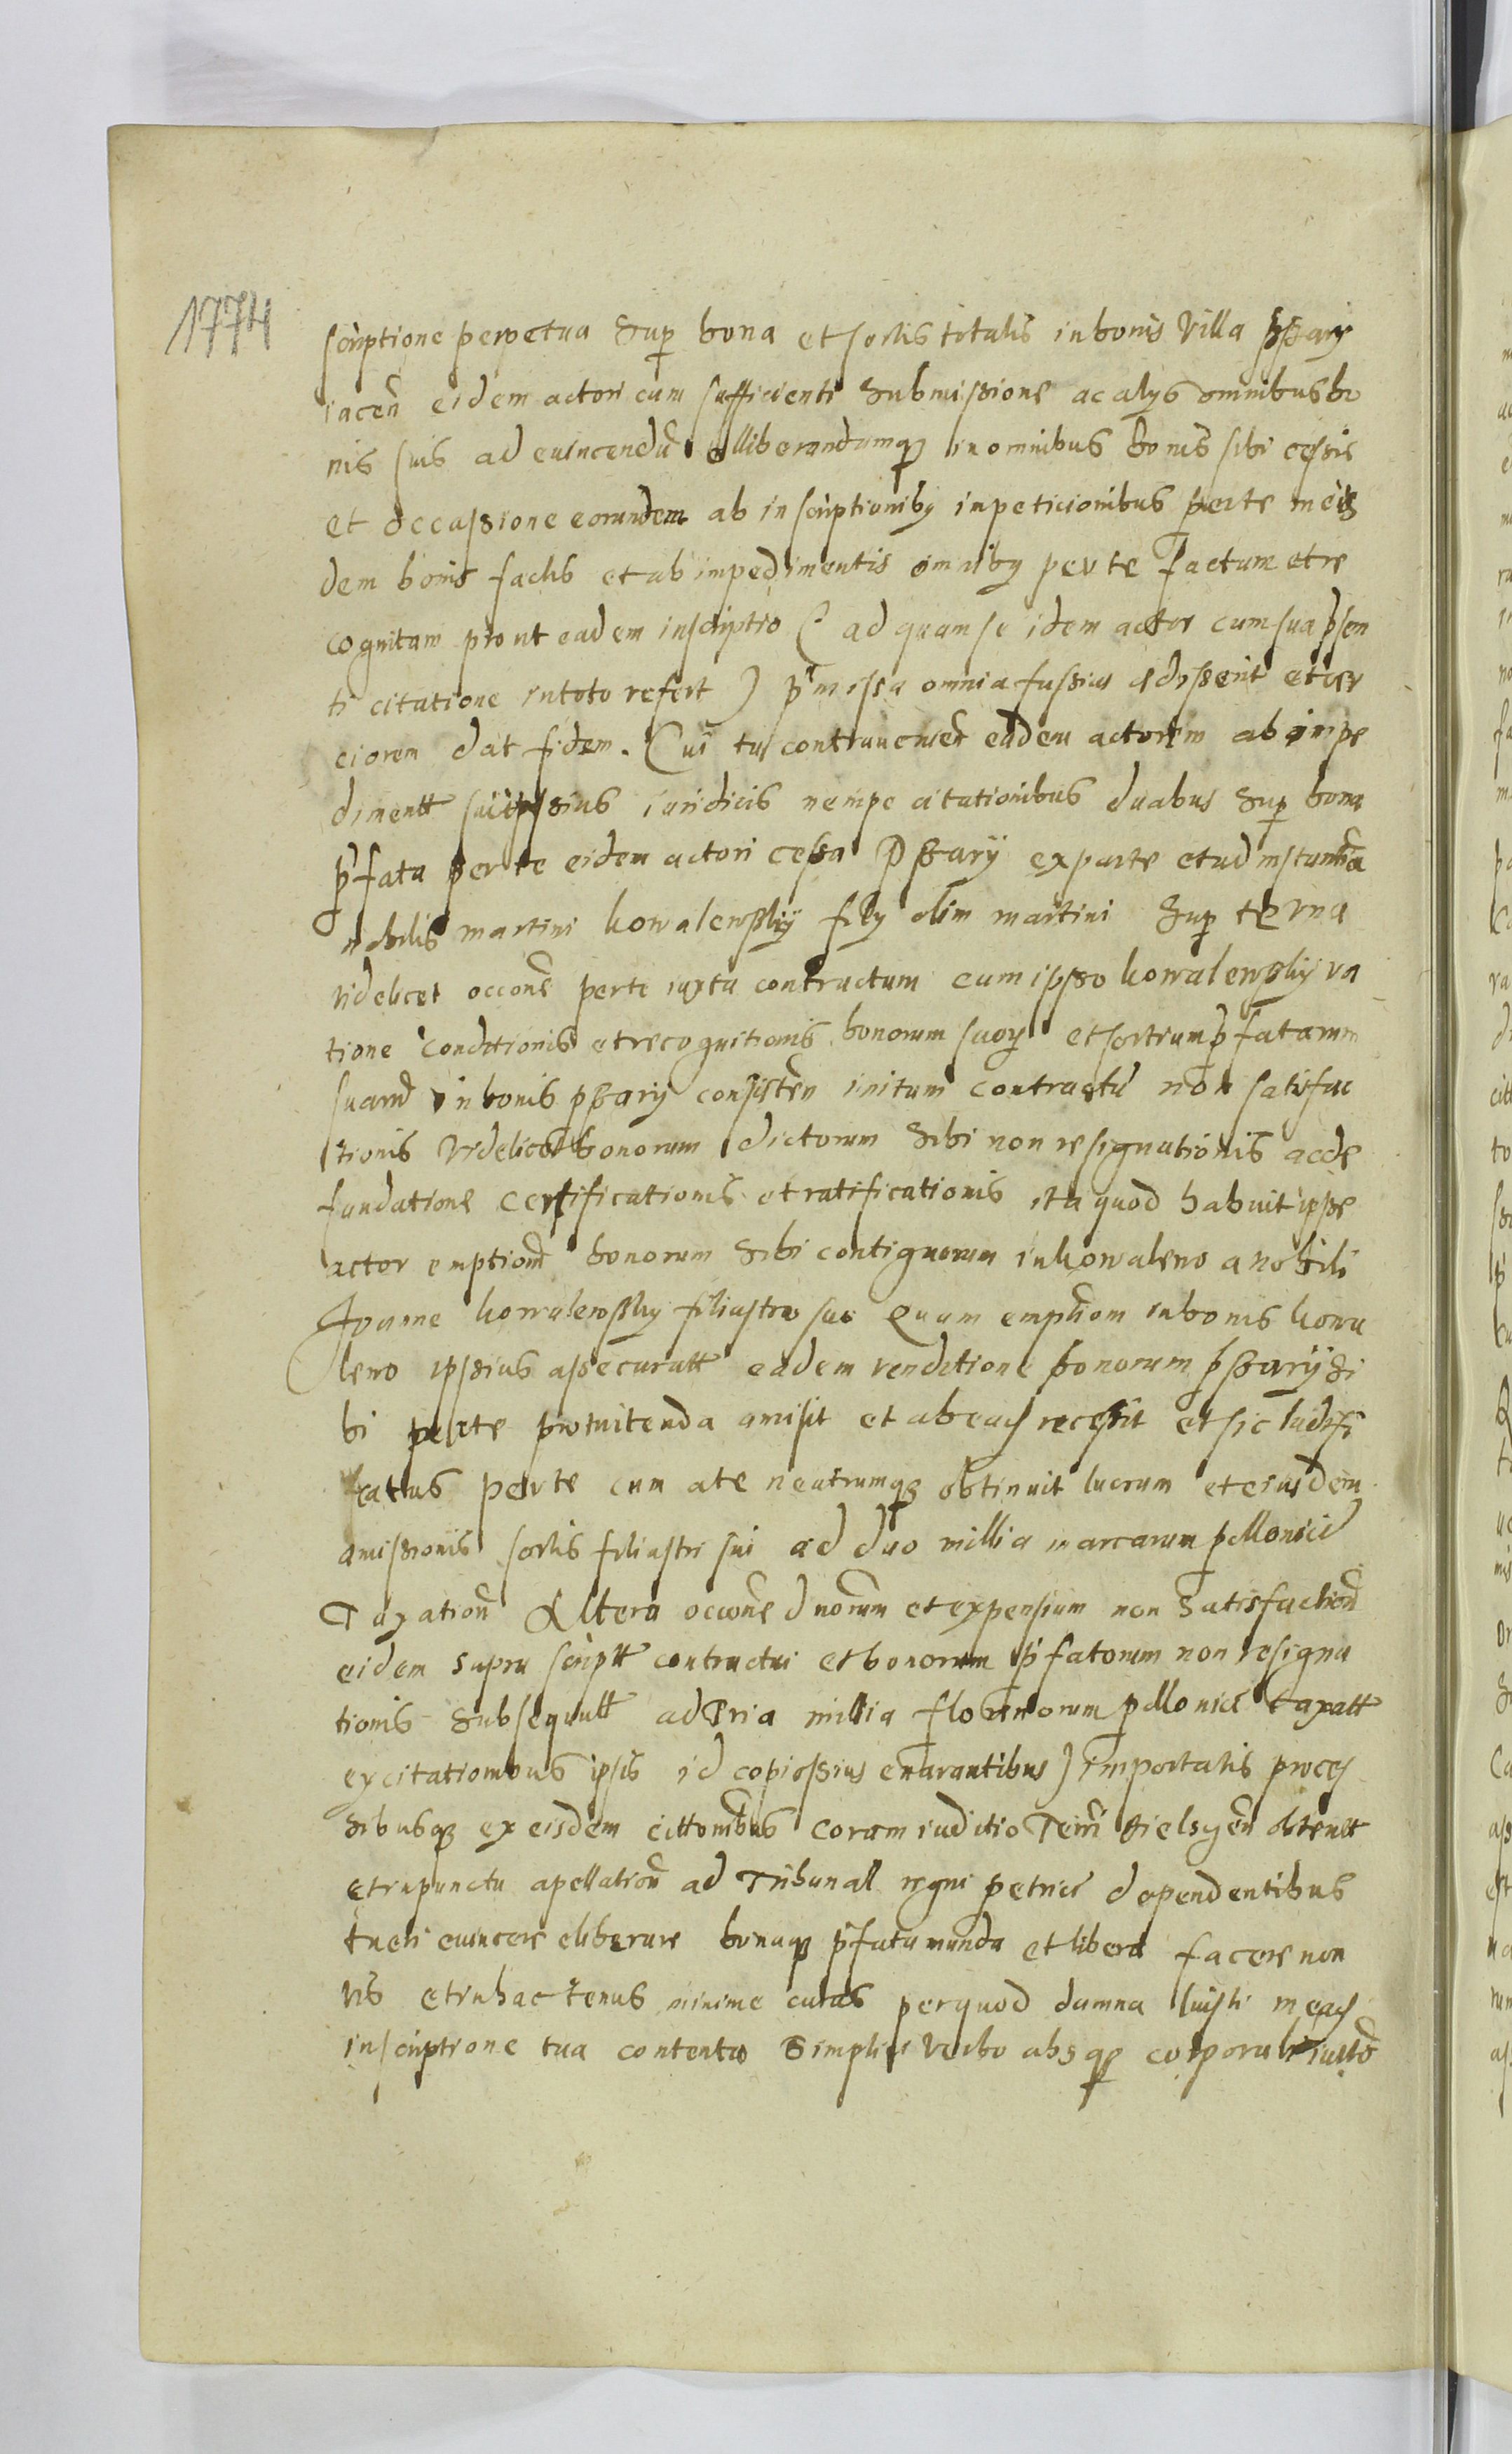 1774
scriptione perpetua Sup bona et sortis totalis in bonis Villa pſzary
iacen eidem actori cum sufficienti Submissione ac alys omnibus bo
nis suis ad euincendu elliberandumq in omnibus bonis sibi cessis
et occassione eorundem ab inscriptioniby inpeticionibus per te in eis
dem bonis factis et ab impedimentis omniby per te factum et re
cognitam prout eadem inscriptio (ad quam se idem actor cum sua psen
ti citatione in toto refert) pmissa omnia fussius edisserit et cer
ciorem dat fidem. Cui tu contrauenien eudem actorem ab impe
dimentt iuridicis nempe citationibus duabus Sup bona
pfata per te eidem actori cessa Pſzary ex parte et ad instantia
nobilis martini kowalewsky fily olim martini Sup terna
videlicet occone per te iuxta contractum cum ipso kowalewsky ra
tione conditionis et recognitionis bonorum suor et sortium pfatarum
suaru in bonis pſzary consisten initum contractu non satisfac
tionis videlicet bonorum dictorum Sibi non resignationis ac de
fundatione certificationis et ratificationis ita quod habuit ipse
actor emptione bonorum Sibi contiguorum in kowalewo a nobili
Joanne kowalewsky filiastro suo Quam emptiom in bonis kowa
lewo ipsius assecuratt eadem venditione bonorum pſzary Si
bi per te promitenda amisit et ab ea recessit et sic ludifi
catus per te cum a te neutrumq obtinuit lucrum et eiusdem
amissionis sortis filiastri sui ad duo millia marcarum pollonic
Taxation Altera occone dnorum et expensium non Satisfaction
eidem supra scriptt contractui et bonorum pfatorum non resigna
tionis Subsequutt ad tria millia florenorum pollonic taxatt
ex citationibus ipsis id copiossius enarantibus) importatis proces
Sibusq ex eisdem cittonibus coram iuditio Terri Bielscen obtentt
et in punctu apellation ad Tribunal regni petric dependentibus
tueri euincere eliberare bonaq pfata munda et libera facere non
vis et in hac tenus minime curas per quod damna luisti in ea
inscriptione tua contenta Simplici verbo absq corporali iutto